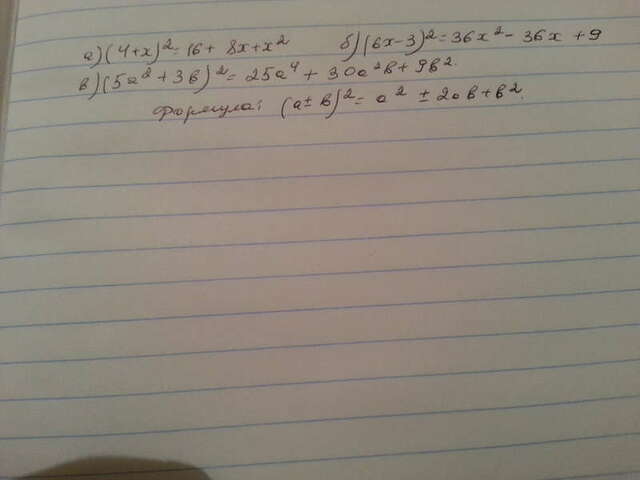 а) (4+x)²=16+ 8x+x² б) (6x-3)²=36x²-36x+9
в) (5a²+3в)²=25a⁴+30a²в+9в².
Формула: (a±в)²=a²±2aв+в².